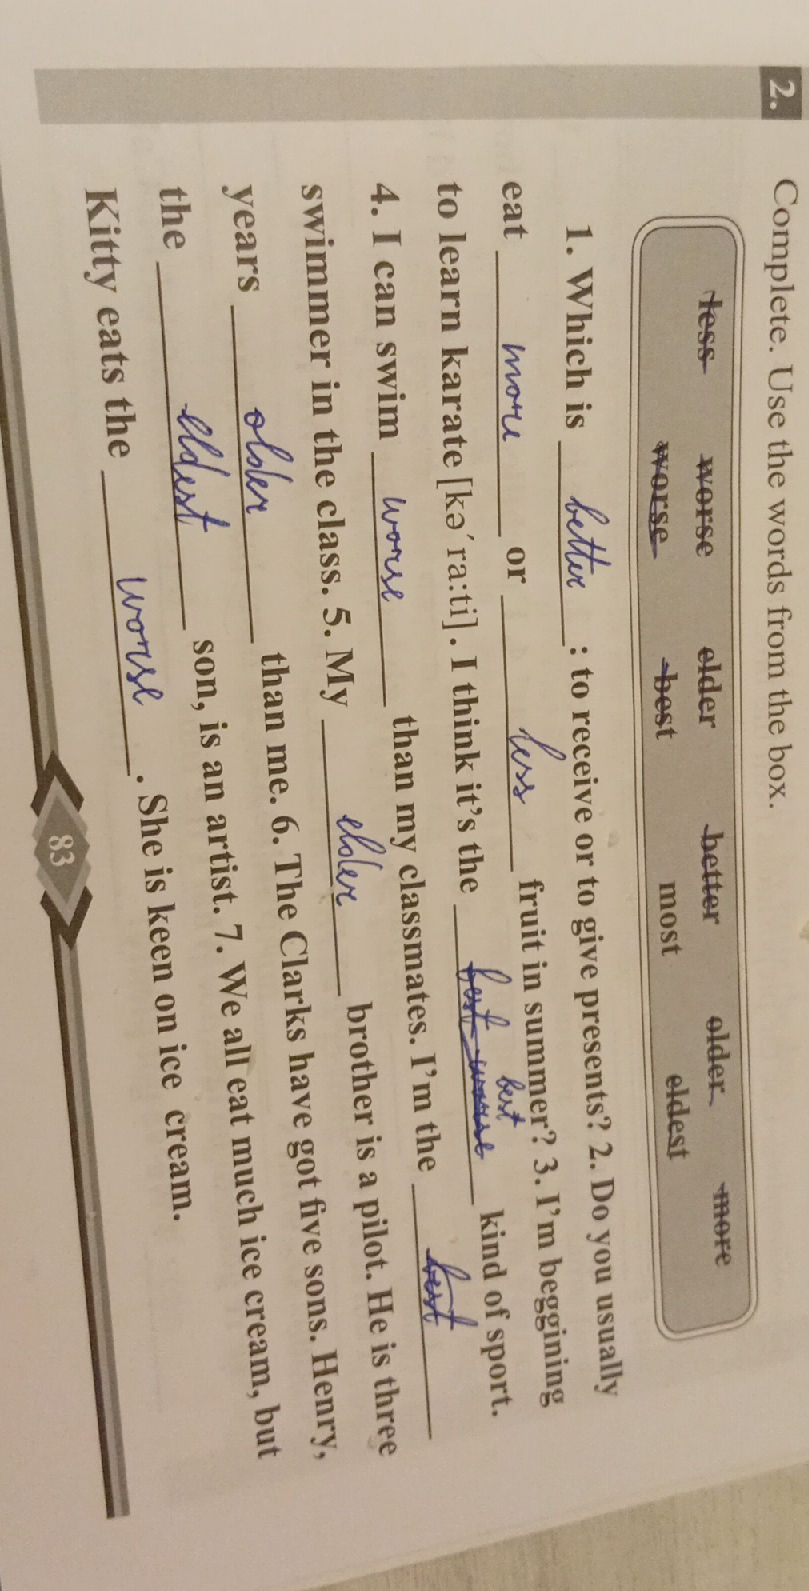 2. Complete. Use the words from the box.
less worse elder better older more
worse best most eldest
1. Which is better : to receive or to give presents? 2. Do you usually
eat more or less fruit in summer? 3. I'm beggining
to learn karate [kə′ra:ti]. I think it's the best worse best kind of sport.
4. I can swim worse than my classmates. I'm the best
swimmer in the class. 5. My elder brother is a pilot. He is three
years older than me. 6. The Clarks have got five sons. Henry,
the eldest son, is an artist. 7. We all eat much ice cream, but
Kitty eats the worse. She is keen on ice cream.
83